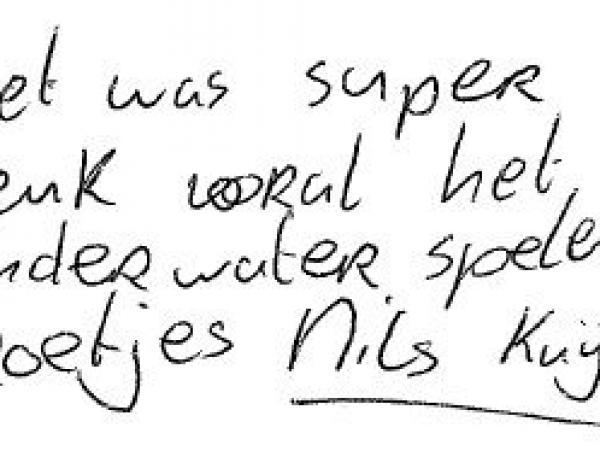 et was super
euk vooral het
nderwater spelen
roetjes Nils Kuij